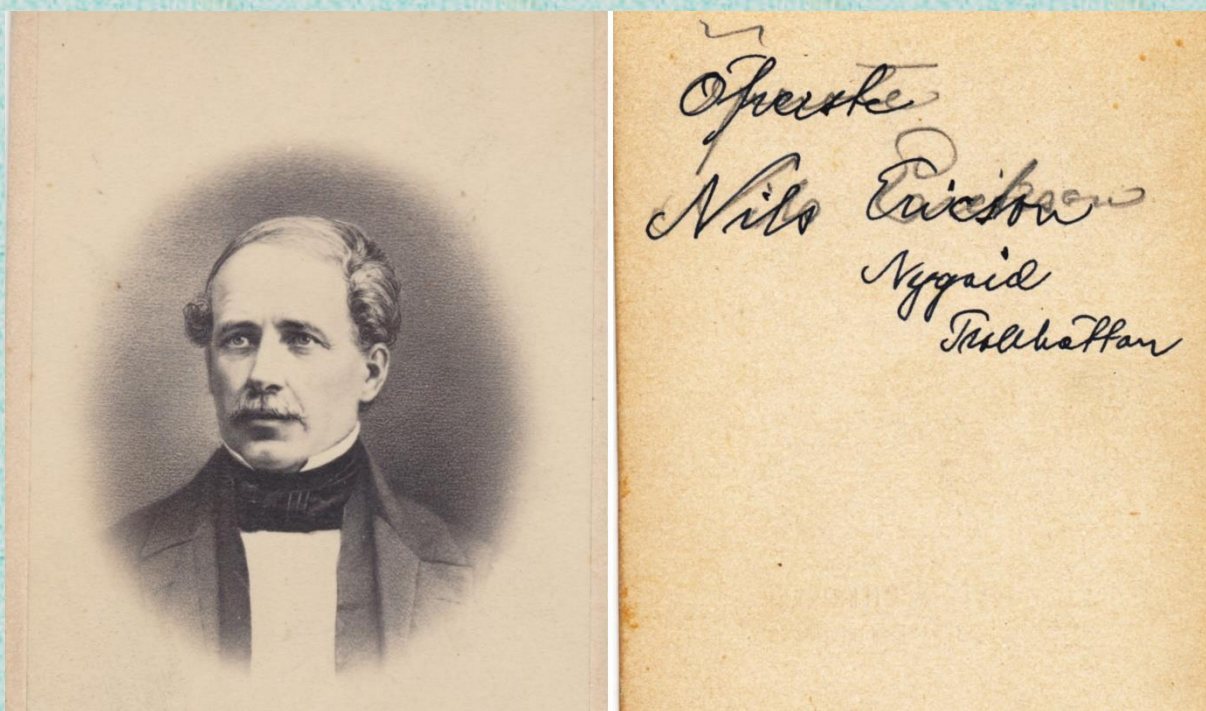 Öfverste
Nils Ericson
Nygård
Trollhättan